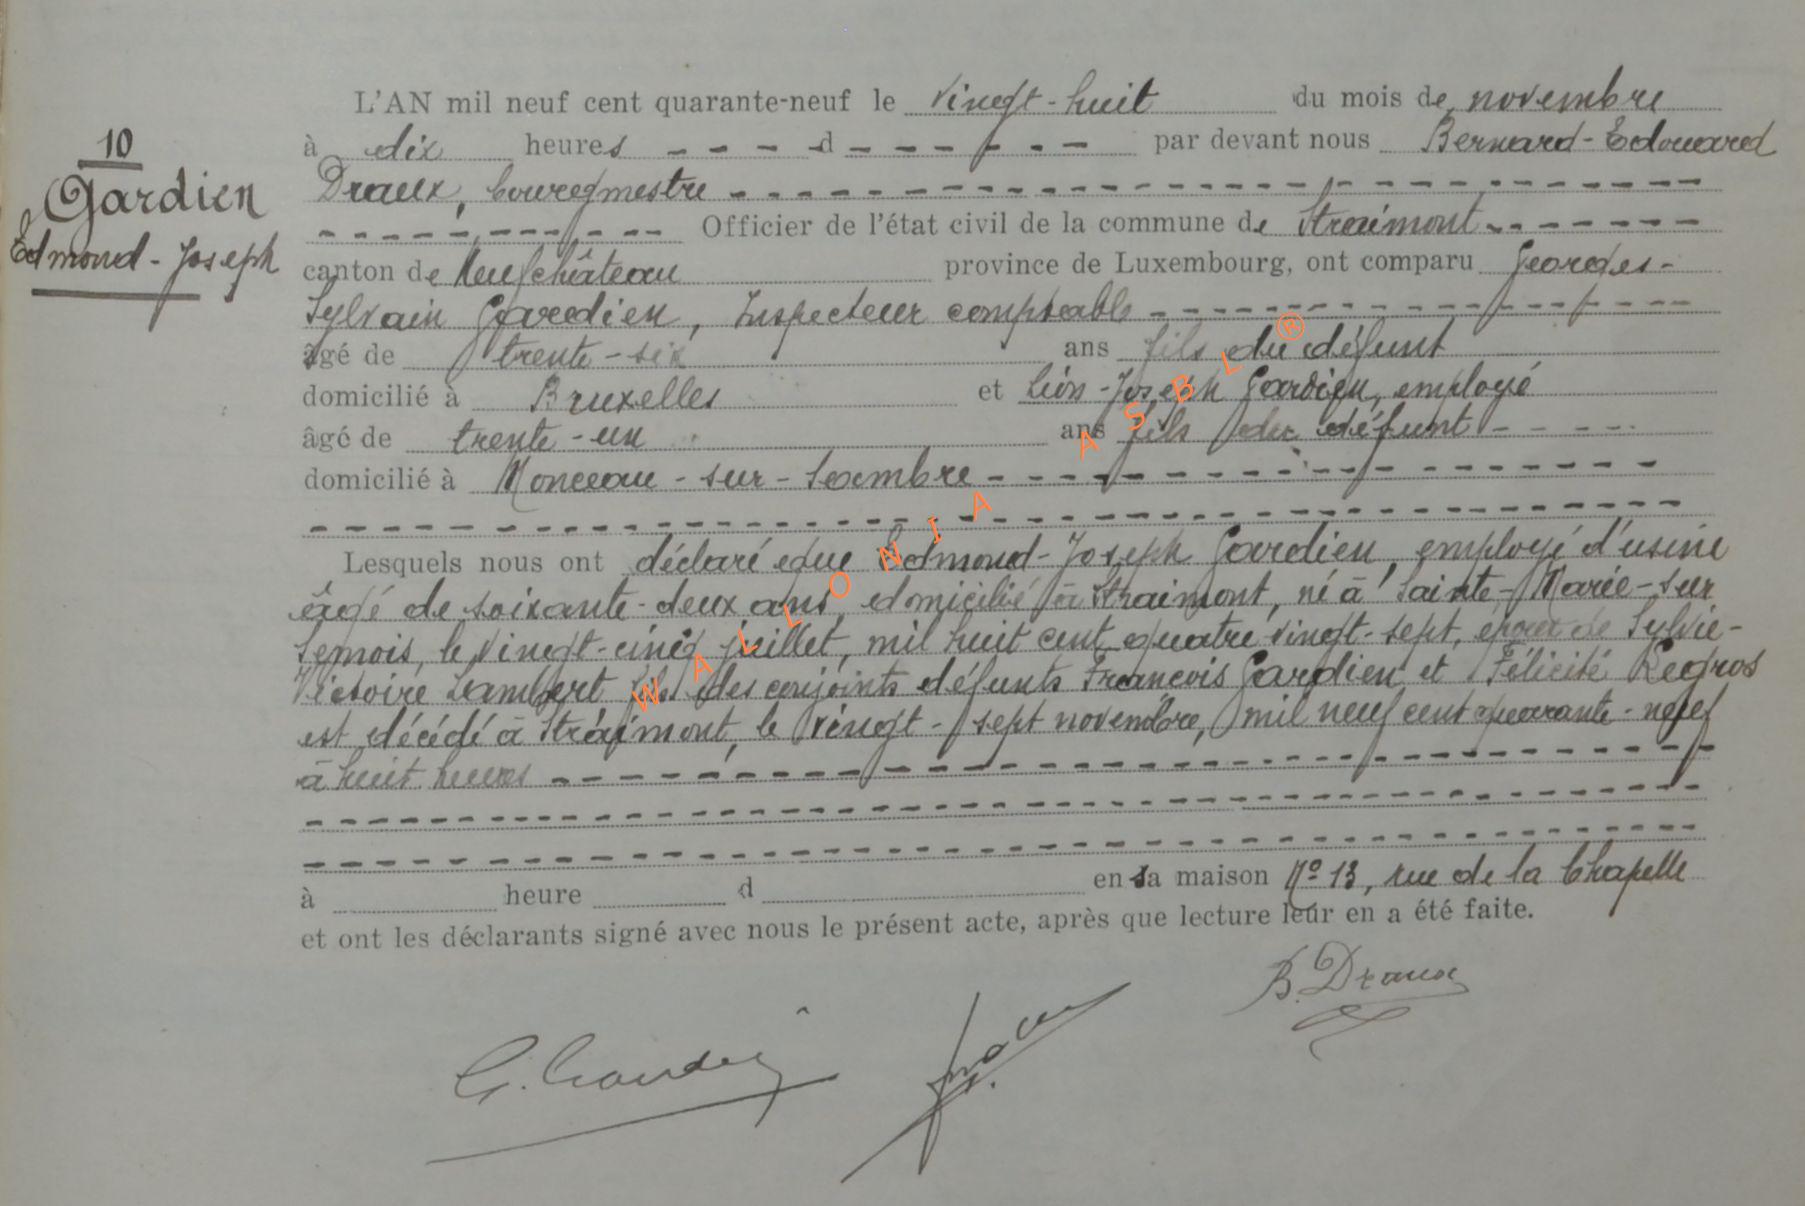 10
Gardien
Edmond-Joseph
L'AN mil neuf cent quarante-neuf le vingt-huit du mois de novembre
à dix heures d par devant nous Bernard-Edouard
Draux, bourgmestre
Officier de l'état civil de la commune de Straimont
canton de Neufchâteau province de Luxembourg, ont comparu Georges-
Sylvain Gardien, Inspecteur comptable
âgé de trente-six ans fils du défunt
domicilié à Bruxelles et Léon-Joseph Gardien, employé
âgé de trente-un ans fils du défunt
domicilié à Monceau-sur-Sambre
Lesquels nous ont déclaré que Edmond-Joseph Gardien, employé d'usine
âgé de soixante-deux ans, domicilié à Straimont, né à Sainte-Marie-sur
Semois, le vingt-cinq juillet, mil huit cent quatre vingt-sept, époux de Sylvie-
Victoire Lambert fils des conjoints défunts François Gardien et Félicité Regros
est décédé à Straimont, le vingt-sept novembre, mil neuf cent quarante-neuf
à huit heures
à heure d en sa maison No 13, rue de la Chapelle
et ont les déclarants signé avec nous le présent acte, après que lecture leur en a été faite.
B. Draux
G. Gardien
WALLONIA ASBL ®